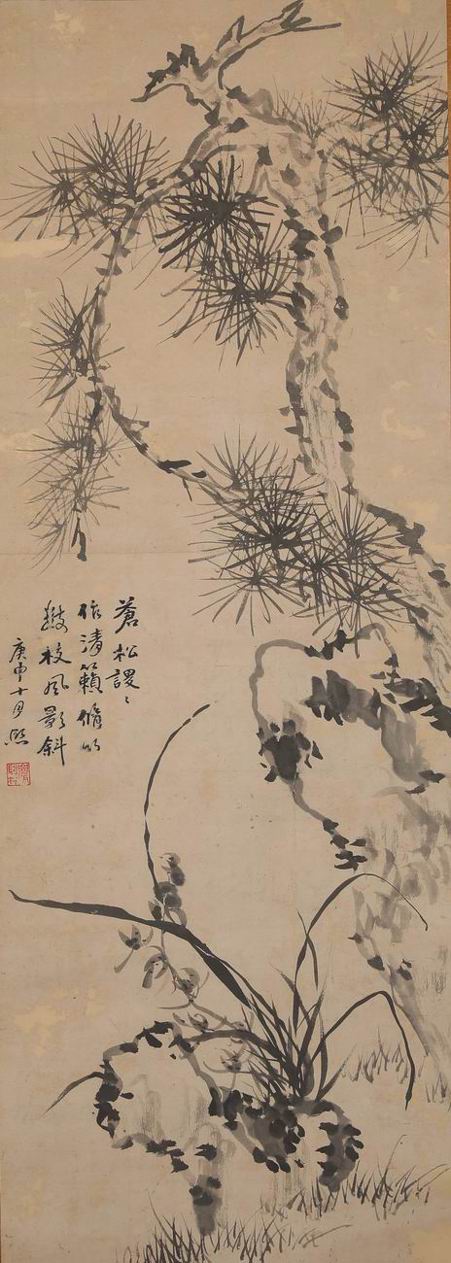 蒼松謖〻
作清籟脩竹
數枝風影斜
庚申十月熙